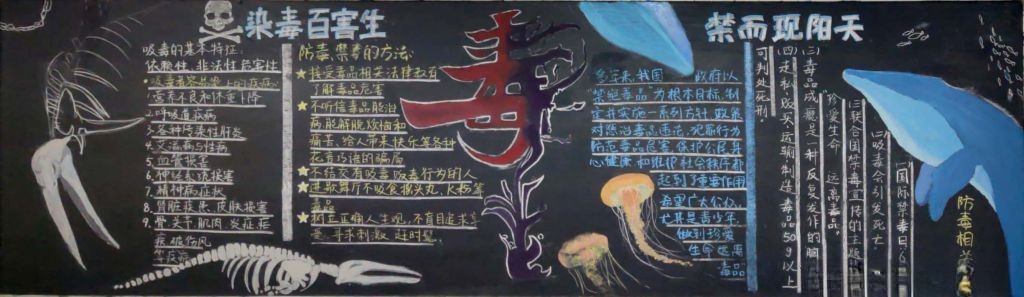 染毒百害生
吸毒的基本特征:
依赖性、非法性、危害性
吸毒者容易染上的疾病:
1.营养不良和体重下降
2.呼吸道疾病
3.各种传染性肝炎
4.艾滋病与性病
5.血管损害
6.神经系统损害
7.精神病症状
8.肾脏疾患、皮肤损害
9.骨、关节、肌肉、炎症疾
病、破伤风
等疾病
防毒、禁毒的方法:
★接受毒品相关法律教育
了解毒品危害
★不听信毒品能治
病能解脱烦恼和
痛苦、给人带来快乐等各种
花言巧语的骗局
★不结交有吸毒、贩毒行为的人
★进歌舞厅不吸食摇头丸、K粉等
毒品
★树立正确人生观,不盲目追求享
受、寻求刺激、赶时髦
毒
禁而现阳天
多年来,我国 政府以
"禁绝毒品"为根本目标,制
定并实施一系列方针、政策
对防治毒品违法、犯罪行为
防范毒品危害、保护公民身
心健康和维护社会秩序都
起到了重要作用
希望广大公众,
尤其是青少年,
做到珍爱
生命、远离
毒品
防毒相关
(一)国际禁毒日6
(二)吸毒会引发死亡
(三)联合国禁毒宣传的主题
"珍爱生命 远离毒品"
(三)毒品成瘾是一种反复发作的脑
(四)走私、贩卖、运输、制造毒品50g以上
可判处死刑。